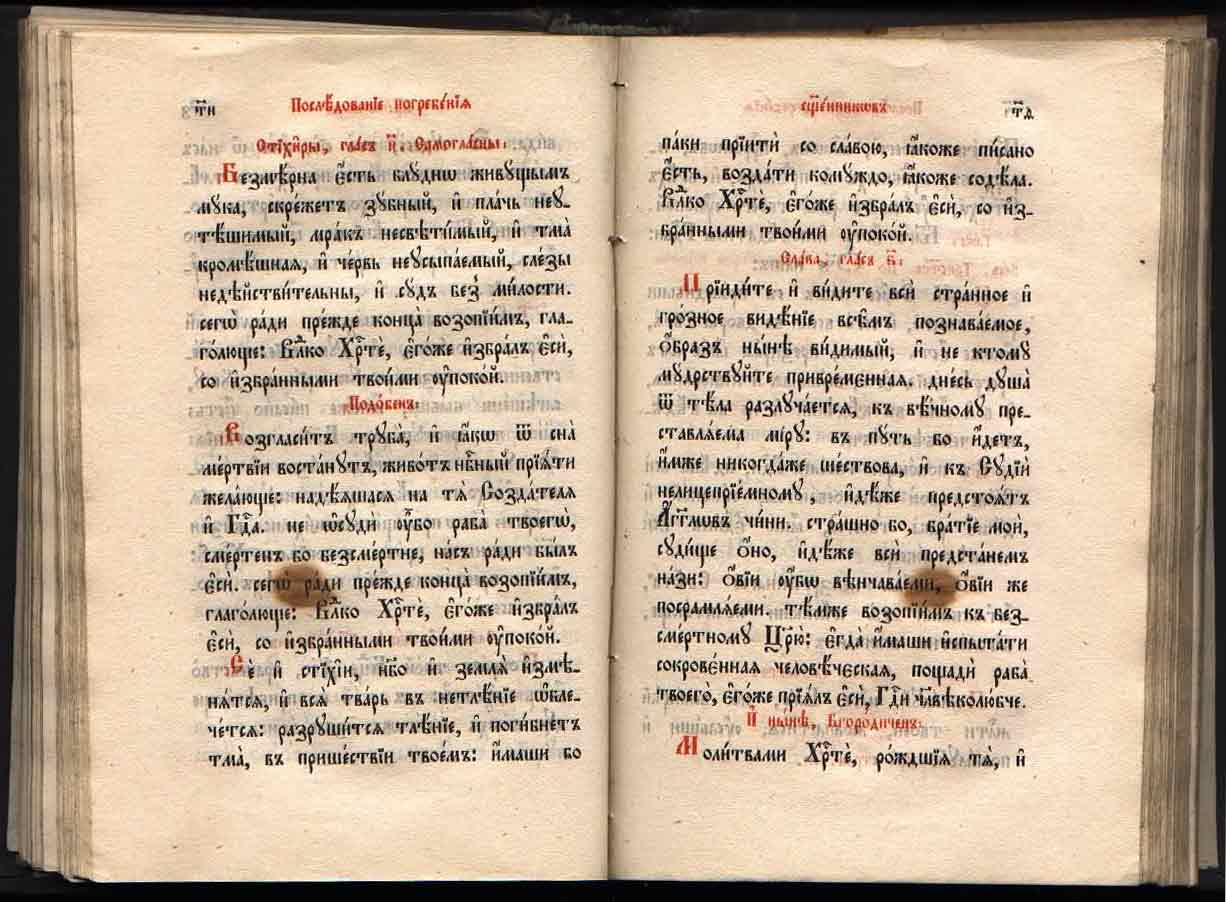 т҃и Послѣ́дованїе погребе́нїѧ
Стїхи̑ры, гла́съ и҃. Самогла́сны:
Безмѣ́рна є҆́сть блꙋ́днѡ живꙋ́щымъ
мꙋ́ка, скре́жетъ зꙋ́бный, и҆ пла́чь неꙋ-
тѣ́шимый, мра́къ несвѣти́мый, и҆ тма̀
кромѣ́шная, и҆ че́рвь неꙋсыпа́емый, сле́зы
недѣ́йстви́тельны, и҆ сꙋ́дъ без̾ ми́лости.
сегѡ̀ ра́ди пре́жде конца̀ возопїи́мъ, гла-
го́люще: Влⷣко Хрⷭ҇тѐ, є҆го́же и҆збра́лъ є҆сѝ,
со и҆збра́нными твои́ми ᲂу҆поко́й.
Подо́бенъ:
Возгласи́тъ трꙋба̀, и҆ ꙗ҆́кѡ ѿ сна̀
ме́ртвїи воста́нꙋтъ, живо́тъ нбⷭ҇ный прїѧ́ти
жела́юще: надѣ́ѧшася на тѧ̀ Созда́телѧ
и҆ Гдⷭ҇а. не ѡ҆сꙋдѝ ᲂу҆̀бо раба̀ твоегѡ̀,
сме́ртенъ бо безсме́ртне, на́съ ра́ди бы́лъ
є҆сѝ. сегѡ̀ ра́ди пре́жде конца̀ возопїи́мъ,
глаго́люще: Влⷣко Хрⷭ҇тѐ, є҆го́же и҆збра́лъ
є҆сѝ, со и҆збра́нными твои́ми ᲂу҆поко́й.
Сѐ и҆ стїхі́и, нб҃о и҆ землѧ̀ и҆змѣ-
нѧ́тсѧ, и҆ всѧ̀ тва́рь въ нетлѣ́нїе ѡ҆бле-
че́тсѧ: разрꙋши́тсѧ тлѣ́нїе, и҆ поги́бнетъ
тма̀, въ прише́ствїи твое́мъ: и҆́маши бо
сщ҃е́нникѡвъ т҃ѳ
па́ки прїитѝ со сла́вою, ꙗ҆́коже пи́сано
є҆́сть, возда́ти комꙋ́ждо, ꙗ҆́коже содѣ́ла.
Влⷣко Хрⷭ҇тѐ, є҆го́же и҆збра́лъ є҆сѝ, со и҆з-
бра́нными твои́ми ᲂу҆поко́й.
Сла́ва, гла́съ
Прїиди́те и҆ ви́дите всѝ стра́нное и҆
гро́зное видѣ́нїе всѣ̑мъ познава́емое,
ѻ҆́бразъ ны́нѣ ви́димый, и҆ не ктомꙋ̀
мꙋ́дрствꙋйте привре́меннаѧ. дне́сь дꙋша̀
ѿ тѣ́ла разлꙋча́етсѧ, къ вѣ́чномꙋ пре-
ставлѧ́ема мі́рꙋ: въ пꙋ́ть бо и҆́детъ,
и҆́мже никогда́же ше́ствова, и҆ къ Сꙋдїѝ
нелицепрїе́мномꙋ, и҆дѣ́же предстоѧ́тъ
А҆́гг҃лѡвъ чи́ни. стра́шно бо, бра́тїе моѝ,
сꙋди́ще ѻ҆́но, и҆дѣ́же всѝ предста́немъ
на́зи: ѻ҆́вїи ᲂу҆́бѡ вѣнчава́еми, ѻ҆́вїи же
посрамлѧ́еми. тѣ́мже возопїи́мъ къ без-
сме́ртномꙋ Цр҃ю̀: є҆гда̀ и҆́маши и҆спыта́ти
сокрове́ннаѧ человѣ́ческаѧ, пощадѝ раба̀
твоего̀, є҆го́же прїѧ́лъ є҆сѝ, Гдⷭ҇и чл҃вѣколю́бче.
И҆ ны́нѣ, Бг҃оро́диченъ:
Моли́твами Хрⷭ҇тѐ, ро́ждшїѧ тѧ̀, и҆